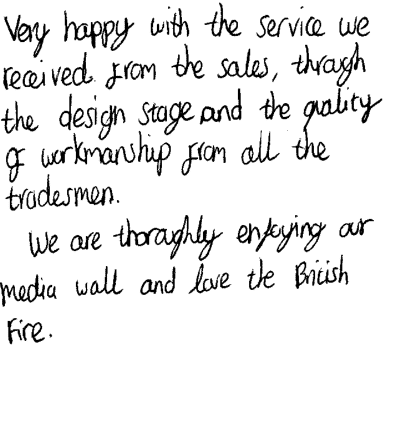 Very happy with the service we
received from the sales, through
the design stage and the quality
of workmanship from all the
tradesmen.
We are thoroughly enjoying our
media wall and love the British
Fire.